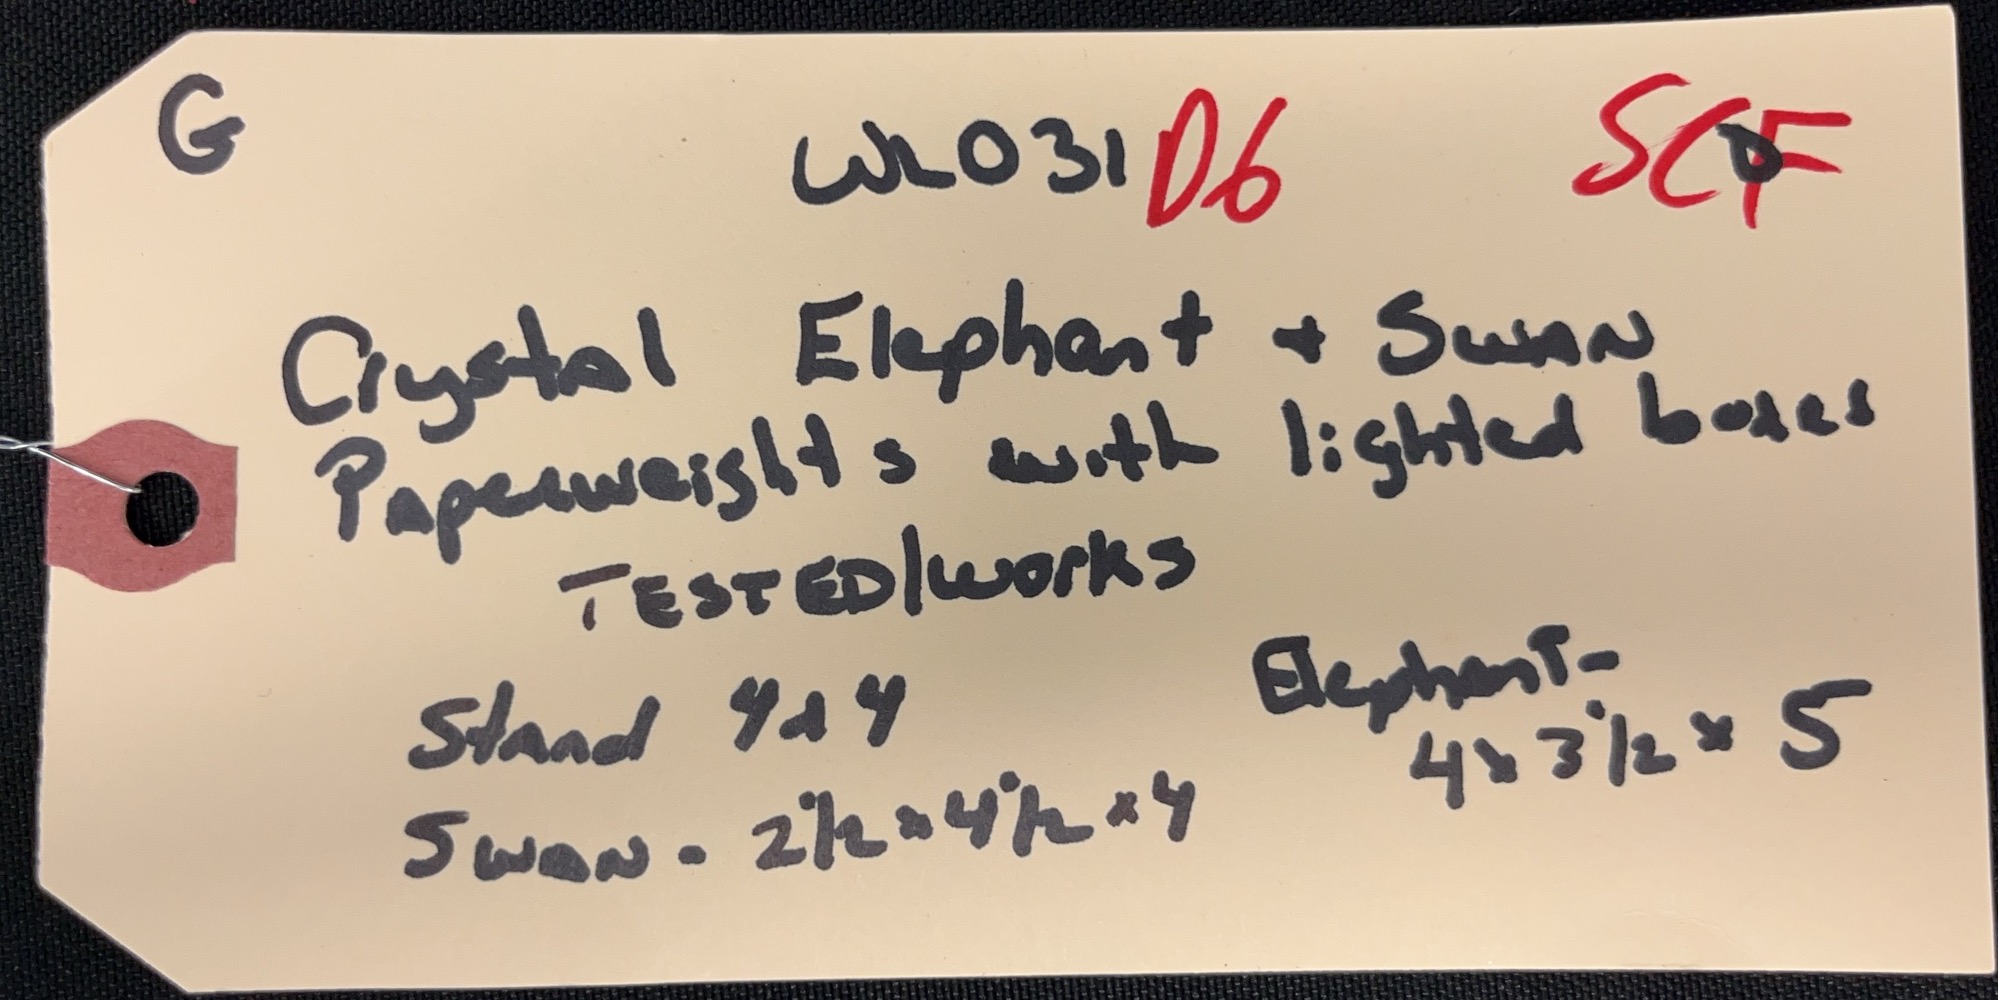 G WL031 D6 SCF
Crystal Elephant + Swan
Paperweights with lighted boxes
TESTED/works
Stand 4x4
Elephant-
4x3 1/2 x 5
Swan - 2 1/2 x 4 1/2 x 4